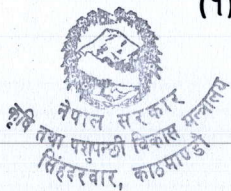 (१)
नेपाल सरकार
कृषि तथा पशुपन्छी विकास मन्त्रालय
सिंहदरबार, काठमाण्डौ